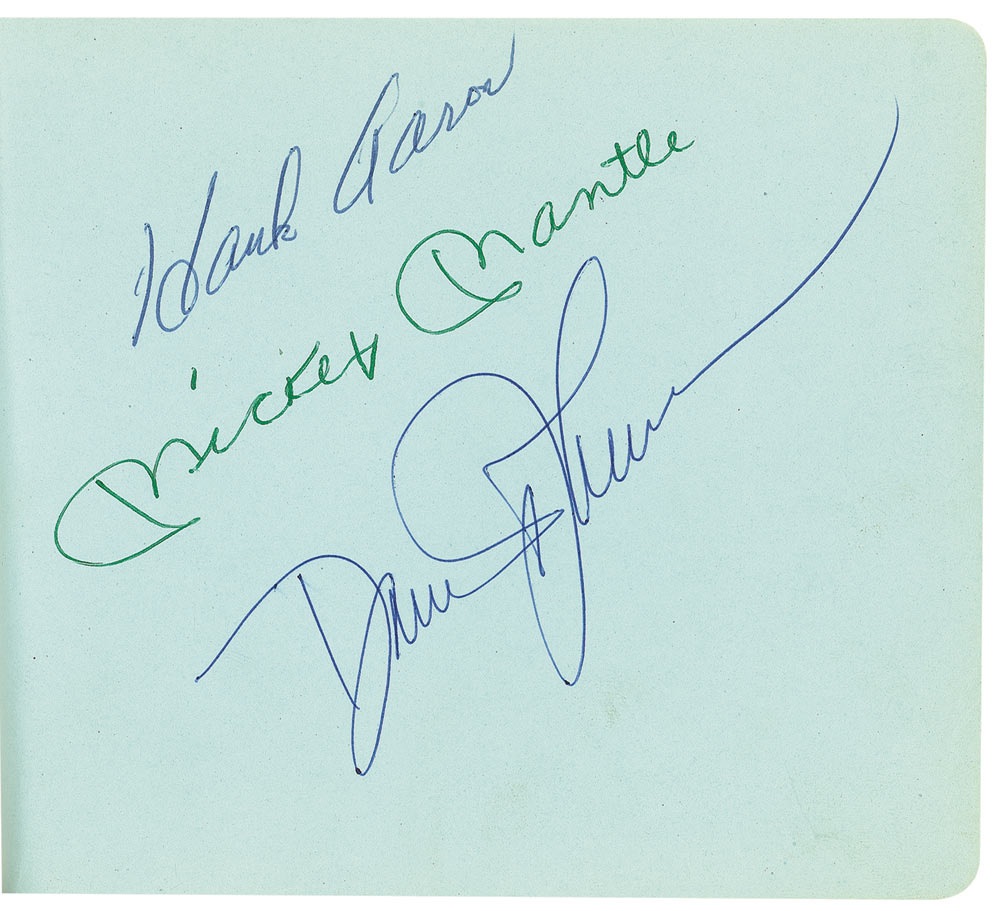 Hank Aaron
Mickey Mantle